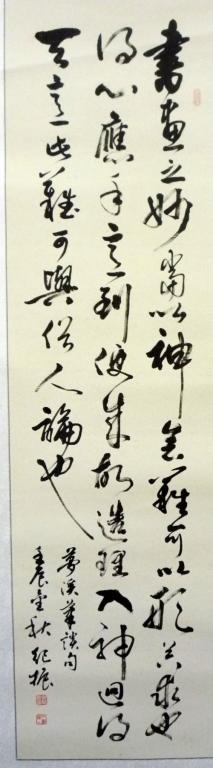 書畫之妙當以神會難可以形器求也
得心應手意到便成故造理入神迥得
天意此難可與俗人論也
夢溪筆談句
壬辰金秋 紀振